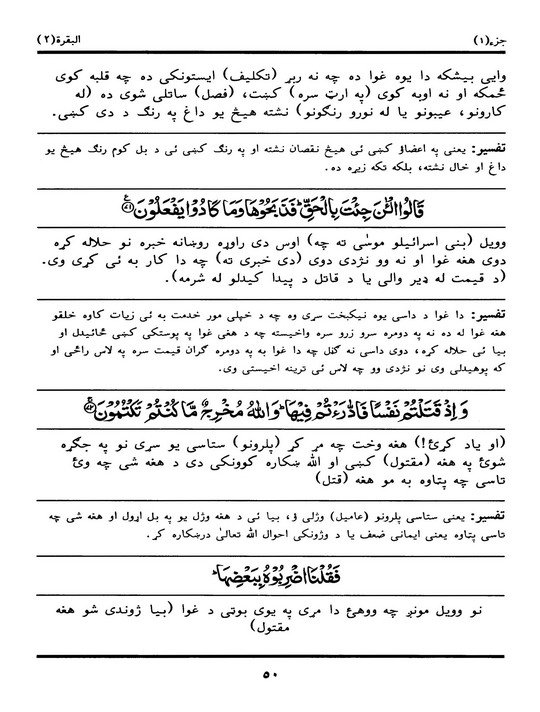 جزء(۱) البقرة(۲)
وایی بیشکه دا یوه غوا ده چه نه ربړ (تکلیف) ایستونکی ده چه قلبه کوی
ځمکه او نه اوبه کوی (په ارټ سره) کښت، (فصل) ساتلی شوی ده (له
کارونو، عیبونو یا له نورو رنګونو) نشته هیڅ یو داغ په رنګ د دی کښی.
تفسیر: یعنی په اعضاؤ کښی ئی هیڅ نقصان نشته او په رنګ کښی ئی د بل کوم رنګ هیڅ یو
داغ او خال نشته، بلکه تکه زیړه ده.
قَالُوا الْـٰٔنَ جِئْتَ بِالْحَقِّ ؕ فَذَبَحُوْهَا وَمَا كَادُوْا يَفْعَلُوْنَ ﴿۷۱﴾
وویل (بنی اسرائیلو موسٰی ته چه) اوس دی راوړه روښانه خبره نو حلاله کړه
دوی هغه غوا او نه وو نژدی دوی (دی خبری ته) چه دا کار به ئی کړی وی.
(د قیمت له ډیر والی یا د قاتل د پیدا کیدلو له شرمه).
تفسیر: دا غوا د داسی یوه نیکبخت سړی وه چه د خپلی مور خدمت به ئی زیات کاوه خلقو
هغه غوا له ده نه په دومره سرو زرو سره واخیسته چه د هغی غوا په پوستکی کښی ځائیدل او
بیا ئی حلاله کړه، دوی داسی نه ګڼل چه دا غوا به په دومره ګران قیمت سره په لاس راځی او
که پوهیدلی وی نو نژدی وو چه لاس ئی ترینه اخیستی وی.
وَاِذْ قَتَلْتُمْ نَفْسًا فَادّٰرَءْتُمْ فِيْهَا ؕ وَاللّٰهُ مُخْرِجٌ مَّا كُنْتُمْ تَكْتُمُوْنَ ﴿۷۲﴾
(او یاد کړئ!) هغه وخت چه مړ کړ (پلرونو) ستاسی یو سړی نو په جګړه
شوئ په هغه (مقتول) کښی او الله ښکاره کوونکی دی د هغه شی چه وئ
تاسی چه پتاوه به مو هغه (قتل)
تفسیر: یعنی ستاسی پلرونو (عامیل) وژلی ؤ، بیا ئی د هغه وژل یو په بل اړول او هغه شی چه
تاسی پتاوه یعنی ایمانی ضعف یا د وژونکی احوال الله تعالیٰ درښکاره کړ.
فَقُلْنَا اضْرِبُوْهُ بِبَعْضِهَا ؕ
نو وویل مونږ چه ووهئ دا مړی په یوی بوتی د غوا (بیا ژوندی شو هغه
مقتول)
۵۰